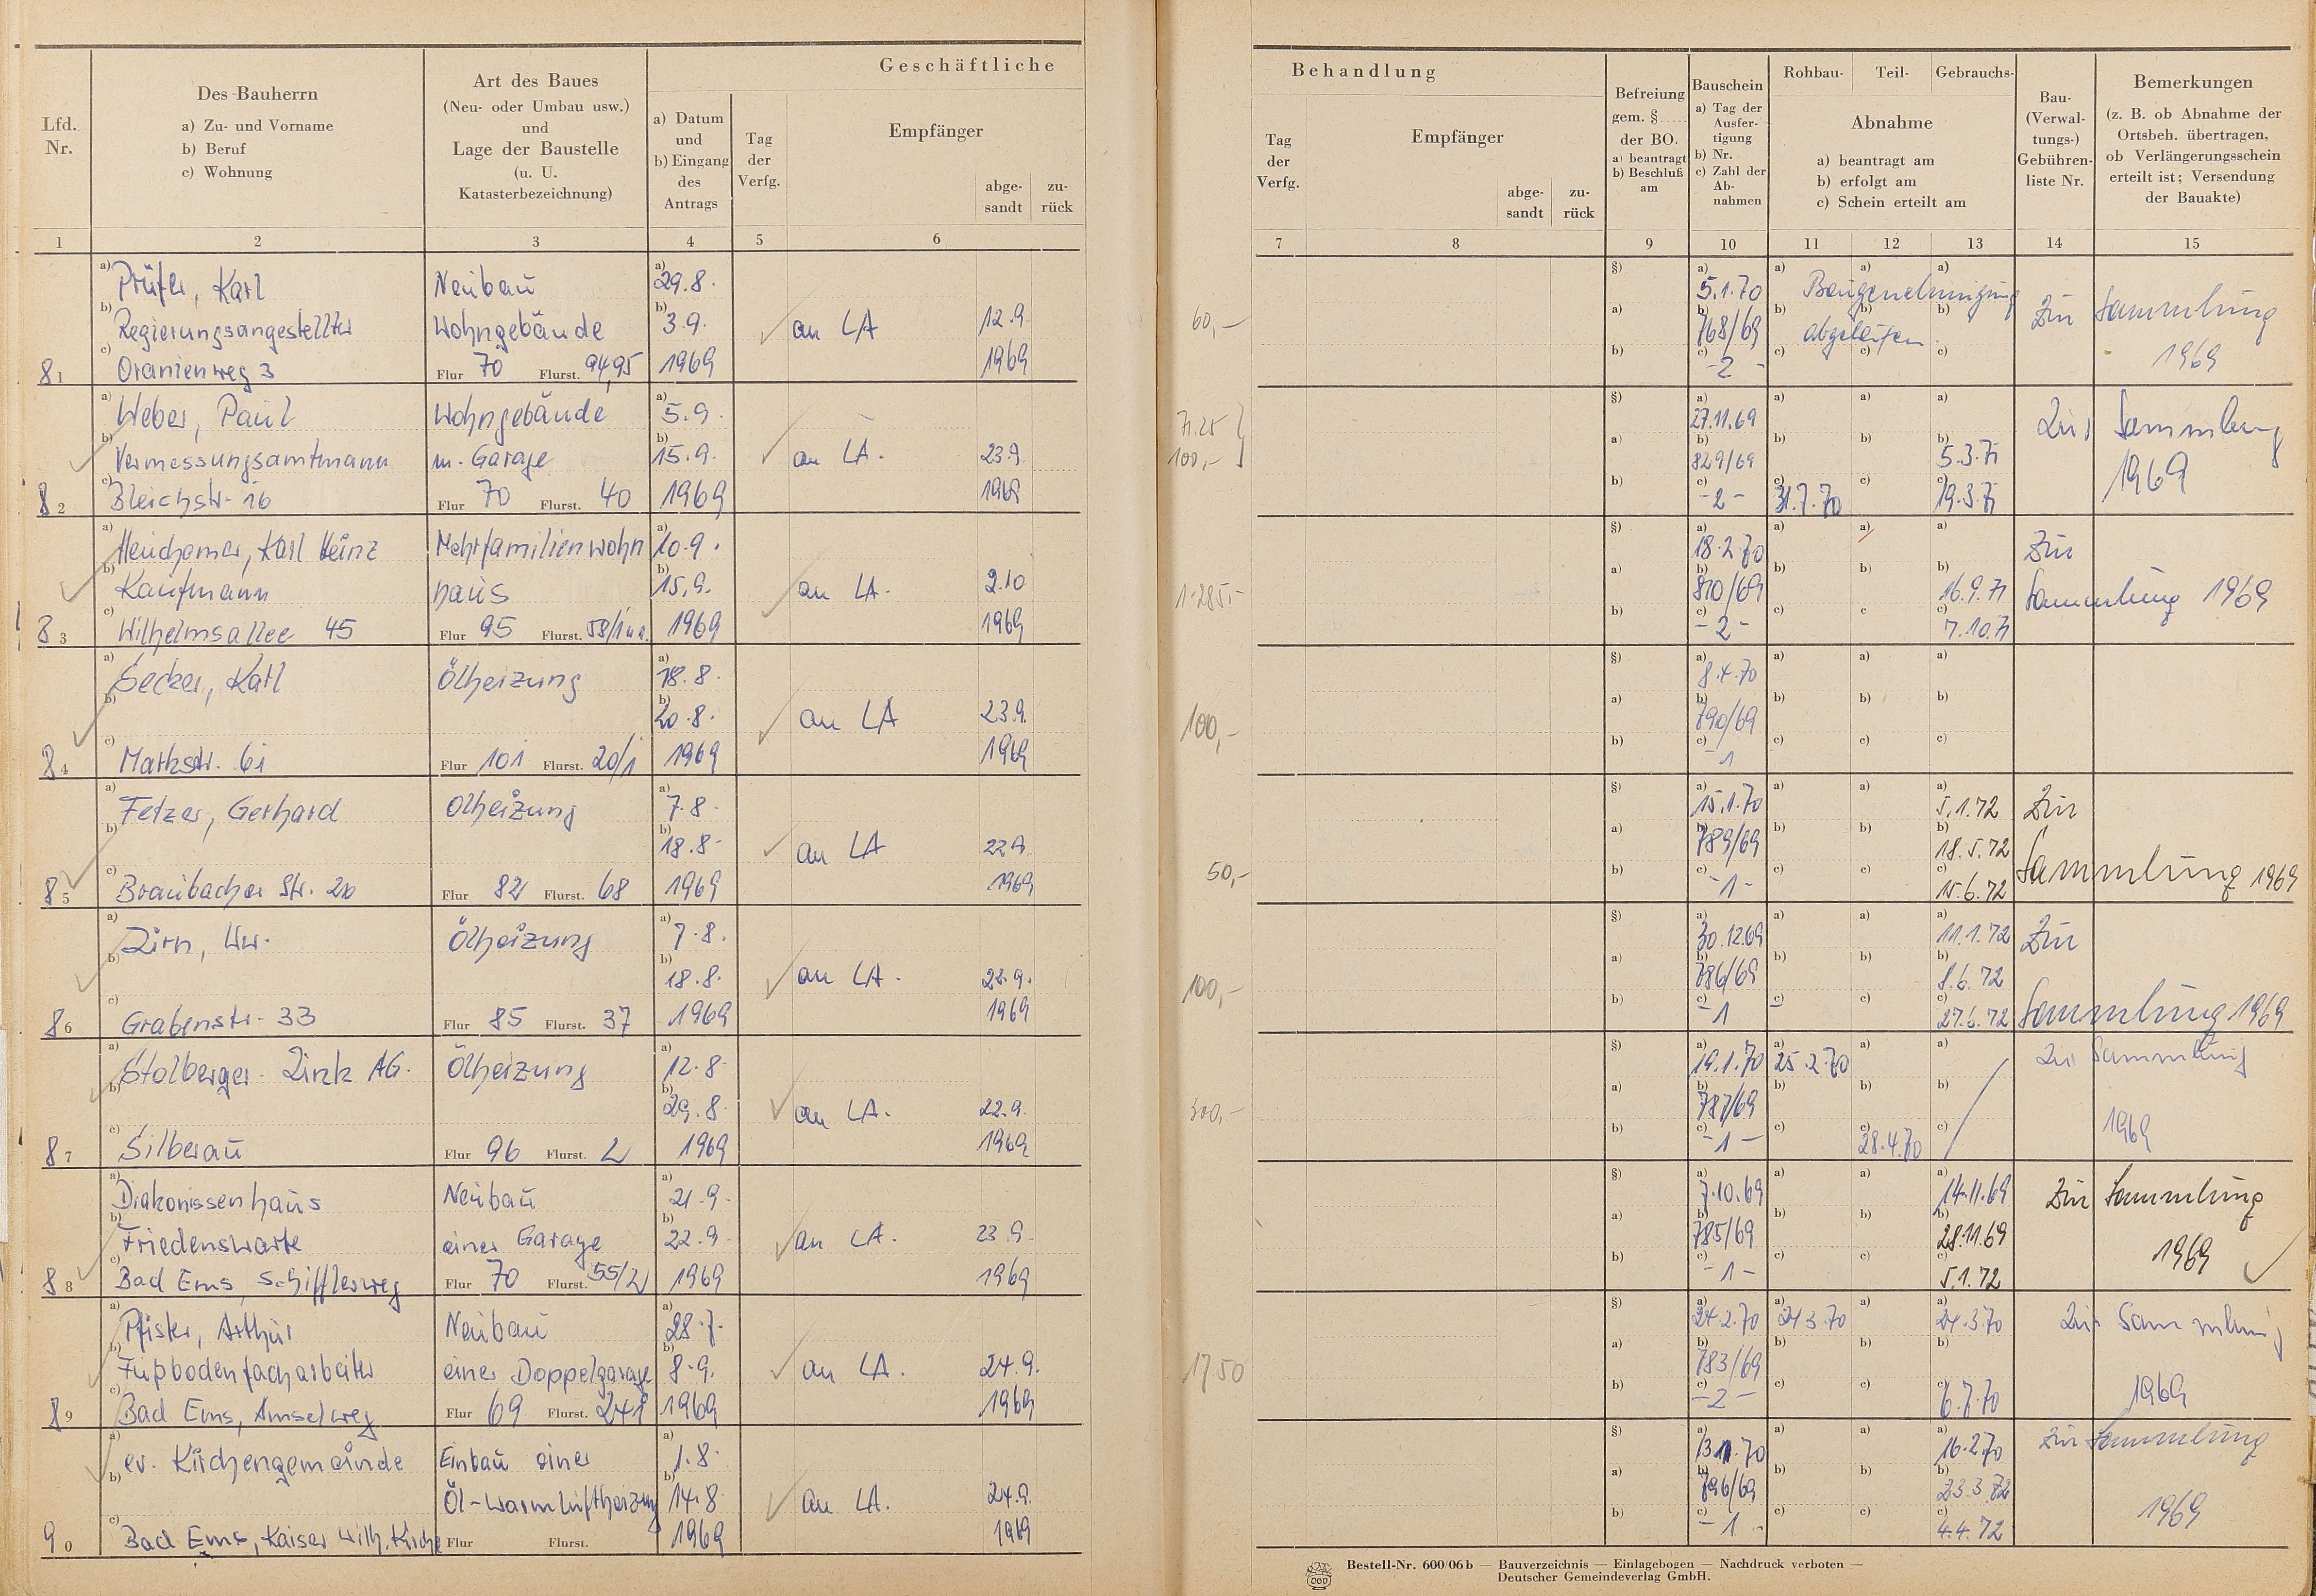 Geschäftliche
Lfd. Nr.
Des Bauherrn
a) Zu- und Vorname
b) Beruf
c) Wohnung
Art des Baues
(Neu- oder Umbau usw.)
und
Lage der Baustelle
(u. U.
Katasterbezeichnung)
a) Datum
und
b) Eingang
des
Antrags
Tag
der
Verfg.
Empfänger
abge-
sandt
zu-
rück
1 2 3 4 5 6
a) Prüfer, Karl Neubau a) 29.8.
b) Regierungsangestellter Wohngebäude b) 3.9. an LA 12.9.
81 c) Oranienweg 3 Flur 70 Flurst. 94,95 1969 1969
a) Weber, Paul Wohngebäude a) 5.9.
b) Vermessungsamtmann m. Garage b) 15.9. an LA. 23.9.
82 c) Bleichstr. 16 Flur 70 Flurst. 40 1969 1969
a) Karl Heinz Mehrfamilienwohn a) 10.9.
b) Kaufmann haus b) 15.9. an LA. 2.10
83 c) Wilhelmsallee 45 Flur 95 Flurst. 1969 1969
a) Secker, Karl Ölheizung a) 18.8.
b) b) 20.8. an LA 23.9.
84 c) Marktstr. 61 Flur 101 Flurst. 20/1 1969 1969
a) Fetzer, Gerhard Ölheizung a) 7.8.
b) b) 18.8. an LA 22.9.
85 c) Braubacher Str. Flur 82 Flurst. 68 1969 1969
a) Zirn, Ww. Ölheizung a) 7.8.
b) b) 18.8. an LA. 22.9.
86 c) Grabenstr. 33 Flur 85 Flurst. 37 1969 1969
a) Stolberger Zink AG. Ölheizung a) 12.8.
b) b) 29.8. an LA. 22.9.
87 c) Silberau Flur 96 Flurst. 2 1969 1969
a) Diakonissenhaus Neubau a) 21.9.
b) Friedenswarte einer Garage b) 22.9. an LA. 23.9.
88 c) Bad Ems, Schifflerweg Flur 70 Flurst. 55/2 1969 1969
a) Pfister, Arthur Neubau a) 28.7.
b) Fußbodenfacharbeiter einer Doppelgarage b) 8.9. an LA. 24.9.
89 c) Bad Ems, Amselweg Flur 69 Flurst. 1969 1969
a) ev. Kirchengemeinde Einbau einer a) 1.8.
b) Öl-Warmluftheizung b) 14.8. an LA. 24.9.
90 c) Bad Ems, Kaiser Wilh. Kirche Flur Flurst. 1969 1969
Behandlung
Tag
der
Verfg.
Empfänger
abge-
sandt
zu-
rück
Befreiung
gem. §
der BO.
a) beantragt
b) Beschluß
am
Bauschein
a) Tag der
Ausfer-
tigung
b) Nr.
c) Zahl der
Ab-
nahmen
Rohbau- Teil- Gebrauchs-
Abnahme
a) beantragt am
b) erfolgt am
c) Schein erteilt am
Bau-
(Verwal-
tungs-)
Gebühren-
liste Nr.
Bemerkungen
(z. B. ob Abnahme der
Ortsbeh. übertragen,
ob Verlängerungsschein
erteilt ist; Versendung
der Bauakte)
7 8 9 10 11 12 13 14 15
§) a) 5.1.70 a) Baugenehmigung a) a)
60,- a) b) 768/69 b) abgelaufen b) b) Zur Sammlung
b) c) -2- c) c) c) 1969
71.25 §) a) 27.11.69 a) a) a) Zur Sammlung
100,- a) b) 829/69 b) b) b) 5.3.71
b) c) -2- c) 31.7.70 c) c) 19.3.71 1969
§) a) 18.2.70 a) a) a) Zur
1.285,- a) b) 810/69 b) b) b) 16.9.71 Sammlung 1969
b) c) -2- c) c c) 7.10.71
§) a) 8.4.70 a) a) a)
100,- a) b) 790/69 b) b) b)
b) c) -1 c) c) c)
§) a) 15.1.70 a) a) a) 5.1.72 Zur
50,- a) b) 789/69 b) b) b) 18.5.72
b) c) -1- c) c) c) 15.6.72 Sammlung 1969
§) a) 30.12.69 a) a) a) 11.1.72 Zur
100,- a) b) 786/69 b) b) b) 8.6.72
b) c) -1 c) c) c) 27.6.72 Sammlung 1969
§) a) 19.1.70 a) 25.2.70 a) a) Zur Sammlung
300,- a) b) 787/69 b) b) b)
b) c) -1- c) c) 28.4.70 c) 1969
§) a) 7.10.69 a) a) a) 14.11.69 Zur Sammlung
a) b) 785/69 b) b) b) 28.11.69
b) c) -1- c) c) c) 5.1.72 1969
§) a) 24.2.70 a) 24.3.70 a) a) 24.3.70 Zur Sammlung
17.50 a) b) 783/69 b) b) b)
b) c) -2- c) c) c) 6.7.70 1969
§) a) a) a) a) 16.2.70 Zur Sammlung
a) b) 796/69 b) b) b) 23.3.72
b) c) -1- c) c) c) 4.4.72 1969
Bestell-Nr. 600/06 b — Bauverzeichnis — Einlagebogen — Nachdruck verboten —
Deutscher Gemeindeverlag GmbH.